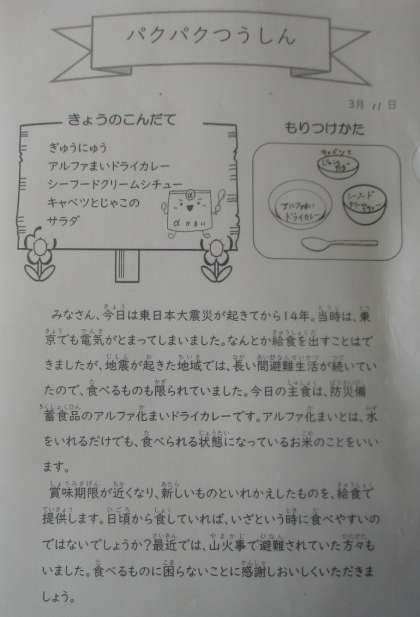 パクパクつうしん
3月 11 日
きょうのこんだて
ぎゅうにゅう
アルファまいドライカレー
シーフードクリームシチュー
キャベツとじゃこの
サラダ
α mai
もりつけかた
キャベツと
じゃこの
サラダ
アルファまい
ドライカレー
シーフード
クリームシチュー
みなさん、今日は東日本大震災が起きてから14年。当時は、東
京でも電気がとまってしまいました。なんとか給食を出すことはで
きましたが、地震が起きた地域では、長い間避難生活が続いてい
たので、食べるものも限られていました。今日の主食は、防災備
蓄食品のアルファ化まいドライカレーです。アルファ化まいとは、水
をいれるだけでも、食べられる状態になっているお米のことをいい
ます。
賞味期限が近くなり、新しいものといれかえしたものを、給食で
提供します。日頃から食していれば、いざという時に食べやすいの
ではないでしょうか?最近では、山火事で避難されていた方々も
いました。食べるものに困らないことに感謝しおいしくいただきま
しょう。